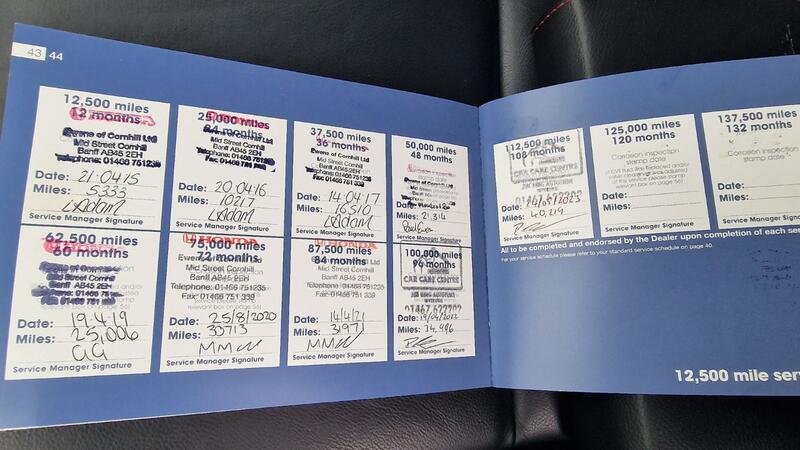 43 44
12,500 miles
12 months
Ewens of Cornhill Ltd
Mid Street Cornhill
Banff AB45 2EH
Telephone: 01466 751235
Date: 21 04 15
Miles: 5333
LAdam
Service Manager Signature
25,000 miles
24 months
Ewens of Cornhill Ltd
Mid Street Cornhill
Banff AB45 2EH
Telephone: 01466 751235
Date: 20 04 16
Miles: 10217
LAdam
Service Manager Signature
37,500 miles
36 months
Ewens of Cornhill Ltd
Mid Street Cornhill
Banff AB45 2EH
Telephone: 01466 751235
Date: 14 04 17
Miles: 16510
LAdam
Service Manager Signature
50,000 miles
48 months
Mid Street Cornhill
Banff AB45 2EH
Date:
Miles: 21,814
Service Manager Signature
62,500 miles
60 months
Banff AB45 2EH
Date: 19.4.19
Miles: 25,006
Service Manager Signature
HONDA
75,000 miles
72 months
Mid Street Cornhill
Banff AB45 2EH
Telephone: 01466 751235
Fax: 01466 751 339
Date: 25/8/2020
Miles: 30713
Service Manager Signature
HONDA
87,500 miles
84 months
Mid Street Cornhill
Banff AB45 2EH
Telephone: 01466 751235
Fax: 01466 751 339
Date: 14/4/21
Miles: 31971
Service Manager Signature
100,000 miles
96 months
CAR CARE CENTRE
01467 622702
Date: 19/04/2022
Miles: 34,996
Service Manager Signature
112,500 miles
108 months
CAR CARE CENTRE
Date:
Miles: 40,219
Service Manager Signature
125,000 miles
120 months
Corrosion inspection
stamp date
Date:
Miles:
Service Manager Signature
137,500 miles
132 months
Corrosion inspection
stamp date
Date:
Miles:
Service Manager Signature
All to be completed and endorsed by the Dealer upon completion of each
For your service schedule please refer to your standard service schedule on page 40.
12,500 mile